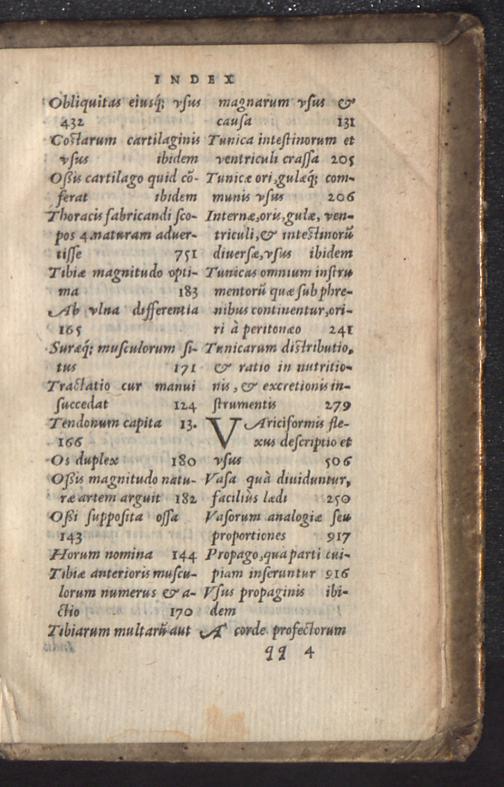 INDEX
Obliquitas eiusq́; vsus
432
Costarum cartilaginis
vsus ibidem
Oßis cartilago quid cõ-
ferat ibidem
Thoracis fabricandi sco-
pos 4.naturam aduer-
tisse 751
Tibiæ magnitudo opti-
ma 183
Ab vlna differentia
165
Suræq́; musculorum si-
tus 171
Tractatio cur manui
succedat 124
Tendonum capita 13.
166
Os duplex 180
Oßis magnitudo natu-
ræ artem arguit 182
Oßi supposita ossa
143
Horum nomina 144
Tibiæ anterioris muscu-
lorum numerus & a-
ctio 170
Tibiarum multarũ aut
magnarum vsus &
causa 131
Tunica intestinorum et
ventriculi crassa 205
Tunicæ ori,gulæq́; com-
munis vsus 206
Internæ,oris,gulæ, ven-
triculi,& intestinorũ
diuersæ,vsus ibidem
Tunicas omnium instru
mentorũ quæ sub phre-
nibus continentur,ori-
ri à peritonæo 241
Tunicarum distributio,
& ratio in nutritio-
nis, & excretionis in-
strumentis 279
VAriciformis fle-
xus descriptio et
vsus 506
Vasa quà diuiduntur,
facilius lædi 250
Vasorum analogiæ seu
proportiones 917
Propago,qua parti cui-
piam inseruntur 916
Vsus propaginis ibi-
dem
A corde profectorum
qq 4